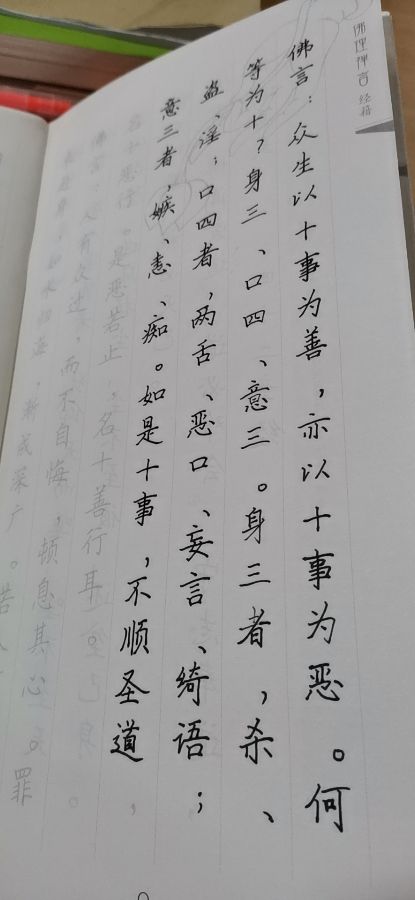 佛理禅言 经籍
佛言：众生以十事为善，亦以十事为恶。何
等为十？身三、口四、意三。身三者，杀、
盗、淫；口四者，两舌、恶口、妄言、绮语；
意三者，嫉、恚、痴。如是十事，不顺圣道，
名十恶行。是恶若止，名十善行耳。
佛言：人有众过，而不自悔，顿息其心。罪
来赴身，如水归海，渐成深广。若